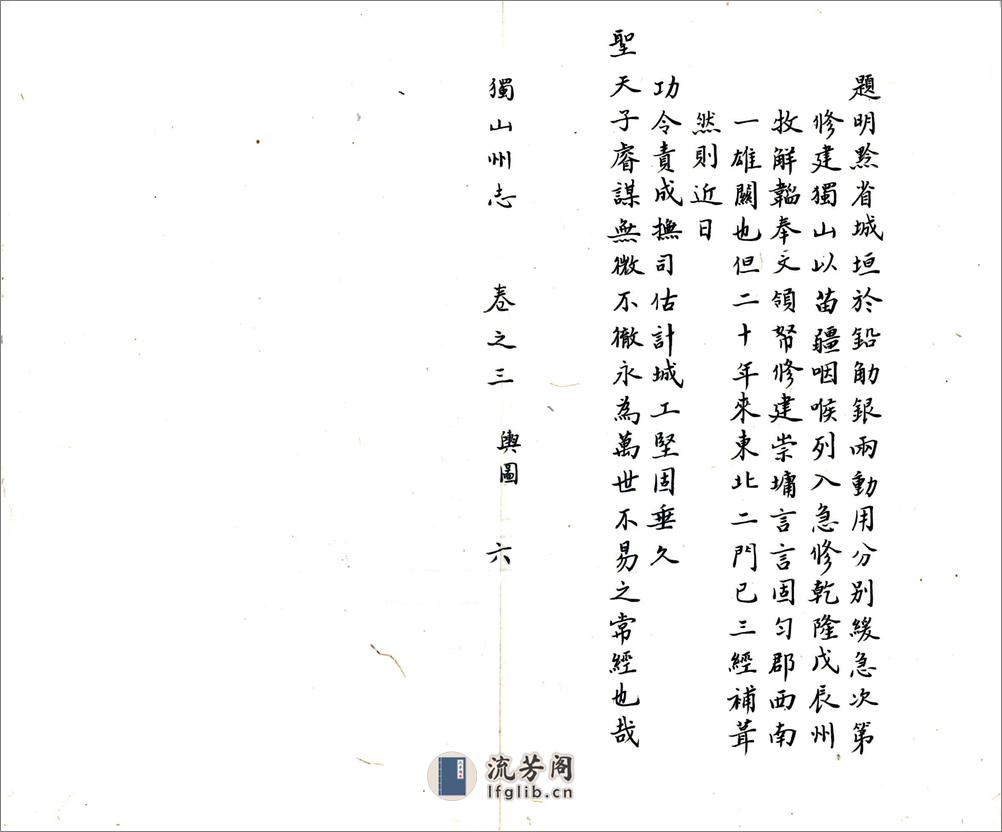 題明黔省城垣於鉛觔銀兩動用分別緩急次第
修建獨山以苗疆咽喉列入急修乾隆戊辰州
牧解韜奉文領帑修建崇墉言言固勻郡西南
一雄關也但二十年來東北二門已三經補葺
然則近日
功令責成撫司估計城工堅固垂久
聖天子睿謀無微不徹永為萬世不易之常經也哉
獨山州志 卷之三 輿圖 六
流芳阁
lfglib.cn